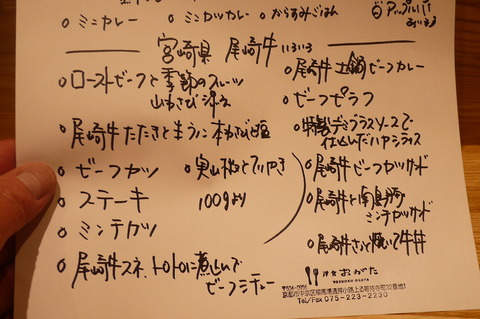 ○ミニカレー　○ミニカツカレー　○からすみごはん
宮崎県 尾崎牛 いろいろ
○ローストビーフと季節のフルーツ
山わさび
○尾崎牛たたきと生うに 本わさびと塩
○ビーフカツ　○実山椒とすりやき
○ステーキ　100gより
○ミンチカツ
○尾崎牛スネ、トロトロに煮込んで
ビーフシチュー
○尾崎牛土鍋ビーフカレー
○ビーフピラフ
○特製デミグラスソースで
仕込んだハヤシライス
○尾崎牛ビーフカツサンド
○尾崎牛と
ミンチカツサンド
○尾崎牛さっと焼いて牛丼
洋食おがた
YOSHOKU OGATA
Tel/Fax 075-223-2230